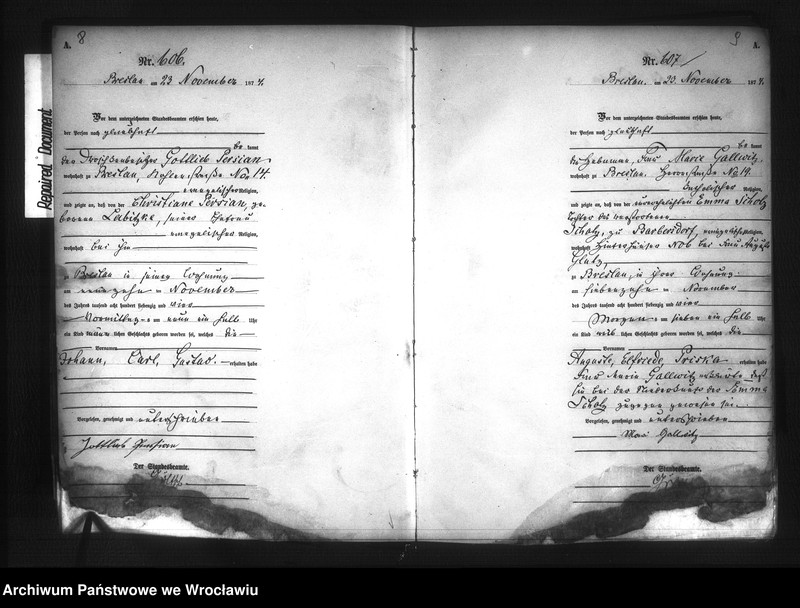 A. 8
Nr. 606.
Breslau am 23 November 1874.
Vor dem unterzeichneten Standesbeamten erschien heute,
der Person nach
be kannt
der Gottlieb Persian
wohnhaft zu Breslau, No 14
evangelischer Religion,
und zeigte an, daß von der Christiane Persian, ge-
borene Labitzke, seiner Ehefrau
evangelischer Religion,
wohnhaft bei ihm
zu Breslau in seiner Wohnung
am November
des Jahres tausend acht hundert siebenzig und vier
Vormittags um neun ein halb Uhr
ein Kind männ lichen Geschlechts geboren worden sei, welches die
Vornamen
Johann, Carl, Gustav erhalten habe
Vorgelesen, genehmigt und unterschrieben
Gottlieb Persian
Der Standesbeamte.
9 A.
Nr. 607
Breslau am 23. November 1874.
Vor dem unterzeichneten Standesbeamten erschien heute,
der Person nach
be kannt
die Hebamme, Frau Marie Gallwitz
wohnhaft zu Breslau, Herrenstraße No 19.
katholischer Religion,
und zeigte an, daß von der unverehelichten Emma Scholz
Tochter des verstorbenen
Scholz, zu evangelischer Religion,
wohnhaft Hinterhäuser No 6 bei Frau
zu Breslau, in ihrer Wohnung
am siebzehn November
des Jahres tausend acht hundert siebenzig und vier
Morgens um sieben ein halb Uhr
ein Kind weib lichen Geschlechts geboren worden sei, welches die
Vornamen
Auguste, Elfriede, Priska erhalten habe
Frau Marie Gallwitz erklärte, daß
sie bei der Niederkunft der Emma
Scholz zugegen gewesen sei.
Vorgelesen, genehmigt und unterschrieben
Marie Gallwitz
Der Standesbeamte.
Repaired Document
Archiwum Państwowe we Wrocławiu